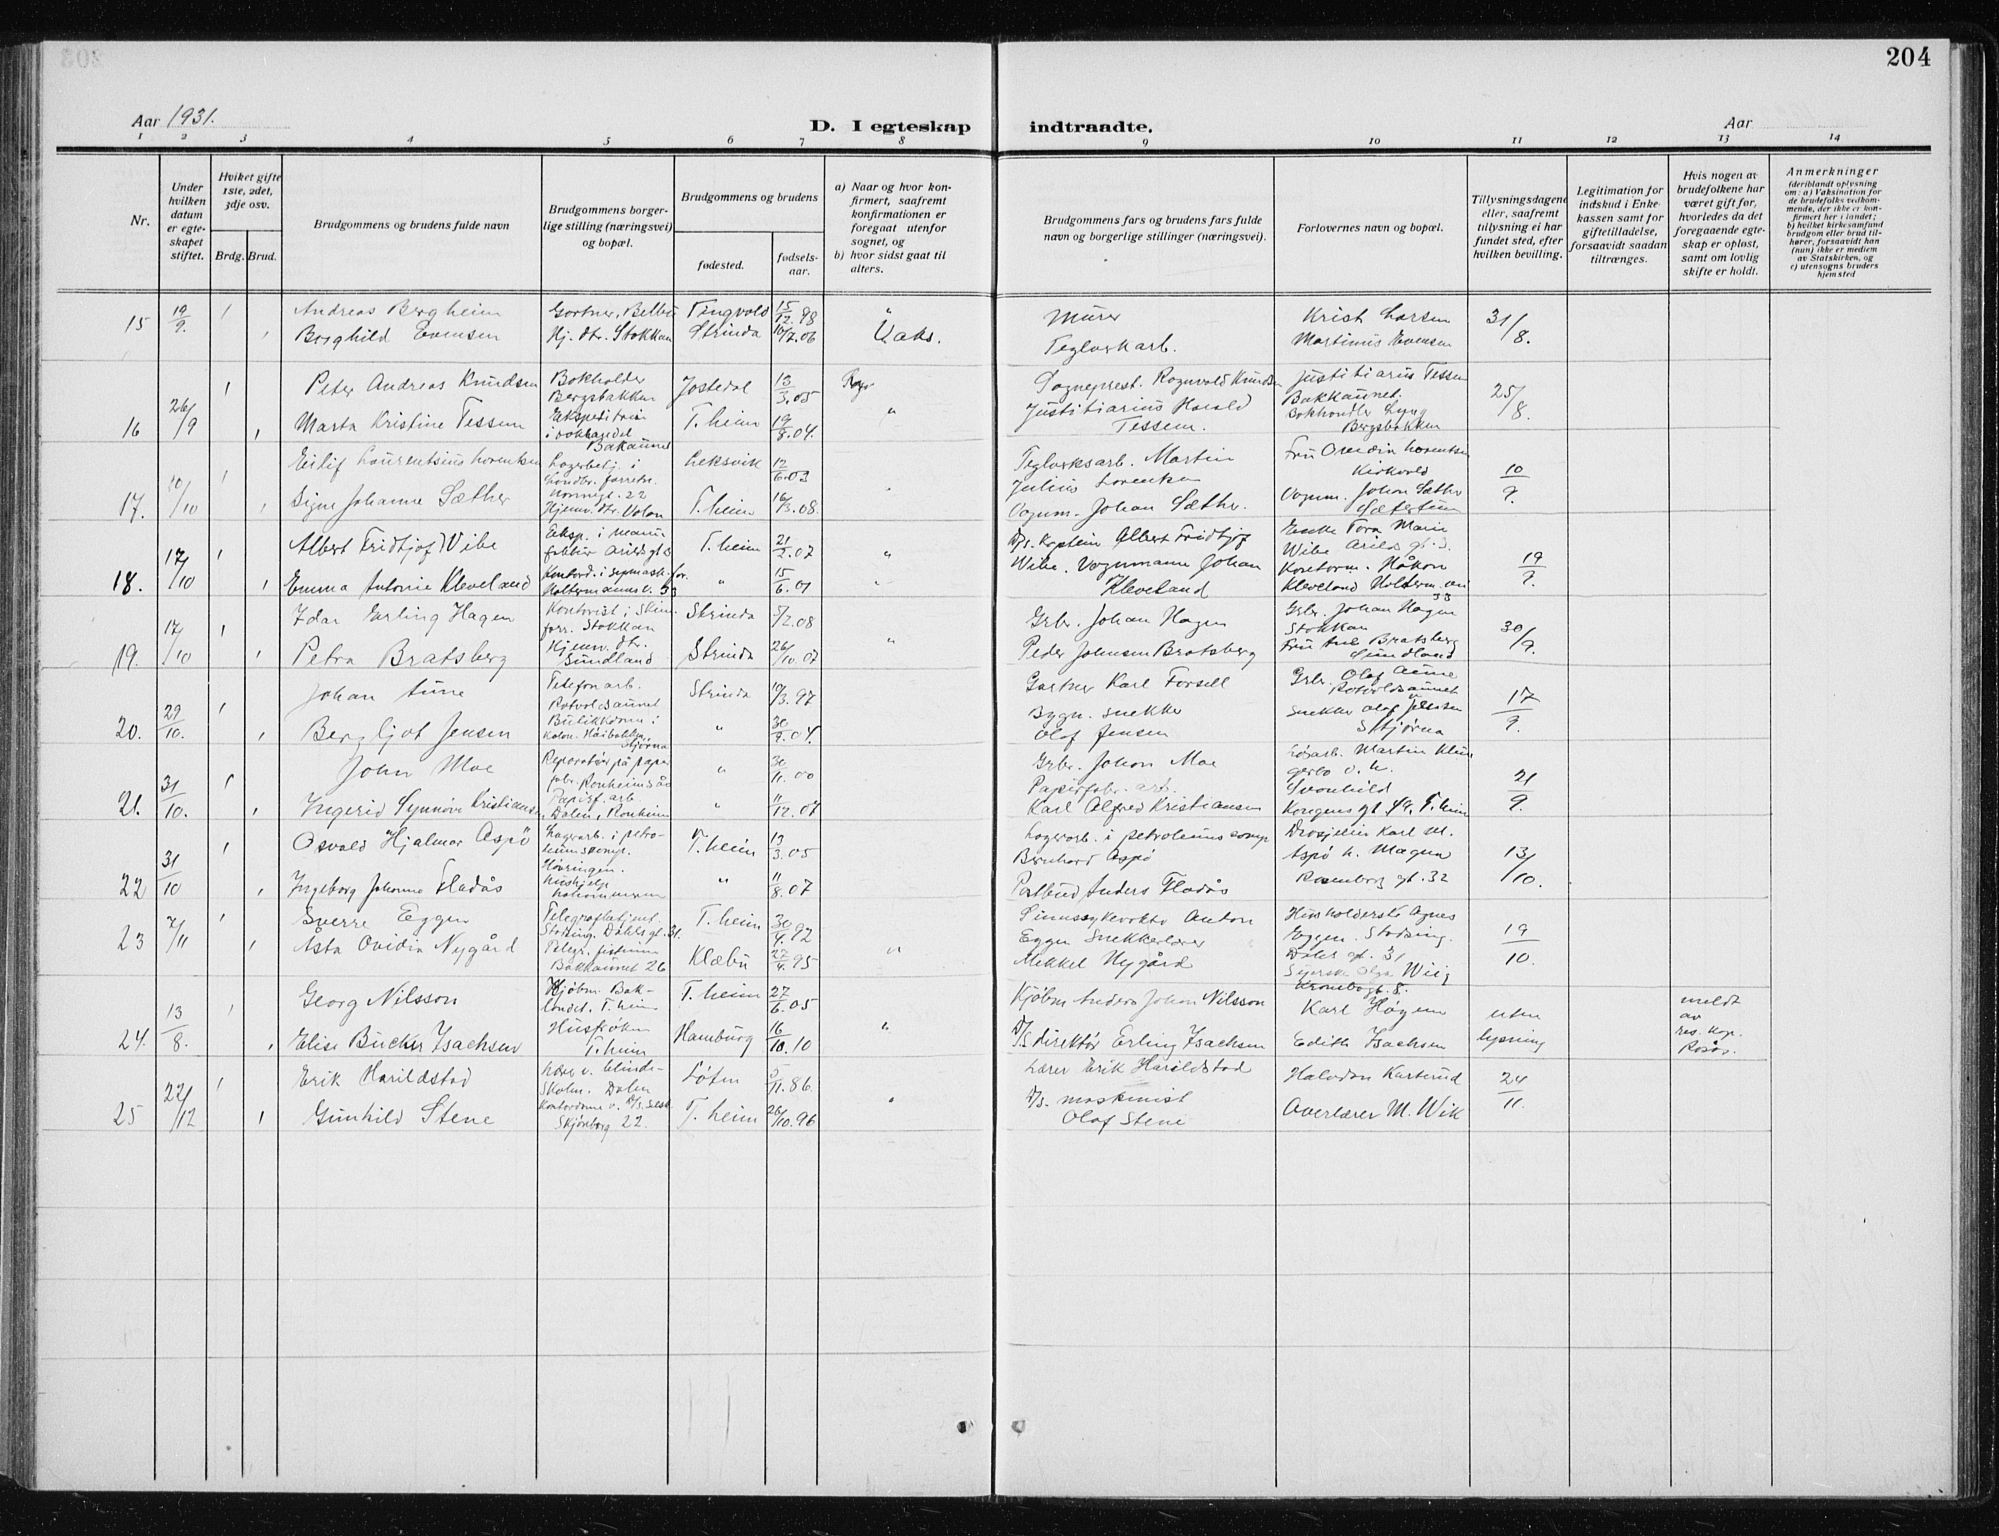 204
Aar 1931.
D. I egteskap indtraadte.
Aar
1 2 3 4 5 6 7 8 9 10 11 12 13 14
Nr.
Under hvilken datum er egteskapet stiftet.
Hviket gifte 1ste, 2det, 3dje osv.
Brdg. Brud.
Brudgommens og brudens fulde navn
Brudgommens borgerlige stilling (næringsvei) og bopæl.
Brudgommens og brudens
fødested.
fødselsaar.
a) Naar og hvor konfirmert, saafremt konfirmationen er foregaat utenfor sognet, og
b) hvor sidst gaat til alters.
Brudgommens fars og brudens fars fulde navn og borgerlige stillinger (næringsvei).
Forlovernes navn og bopæl.
Tillysningsdagene eller, saafremt tillysning ei har fundet sted, efter hvilken bevilling.
Legitimation for indskud i Enkekassen samt for giftetilladelse, forsaavidt saadan tiltrænges.
Hvis nogen av brudefolkene har været gift før, hvorledes da det foregaaende egteskap er opløst, samt om lovlig skifte er holdt.
Anmerkninger
(deriblandt oplysning om: a) Vaksination for de brudefolks vedkommende, der ikke er konfirmert her i landet; b) hvilket kirkesamfund brudgom eller brud tilhører, forsaavidt han (hun) ikke er medlem av Statskirken, og c) utensogns bruders hjemsted
15 19/9. 1 Andreas Bergheim Gartner, Belbu Tingvold 15/12.98 " Murer Krist Larsen 31/8.
1 Borghild Evensen Hj. dtr. Stokkan Strinda 10/7.06 Vaks. Teglverkarb. Martinus Evensen
16 26/9 1 Peter Andreas Knudsen Bokholder Bergsbakken Jostedal 13/3.05 Sogneprest. Rognvald Knudsen Justitiarius Tessem Bakkaunet. 25/8.
1 Marta Kristine Tessem Ekspeditrise i bokhandel Bakaunet T.heim 19/8.04. " Justitiarius Harald Tessem. Bokhandler Lyng Bergsbakken
17. 10/10 1 Eilif Laurentsius Lorentsen Lagerbetj. i Landbr. forretn. Leksvik 12/6.03 Teglverksarb. Martin Julius Lorentsen Fru Lorentsen Kirkvold 10/9.
1 Signe Johanne Sæther Hjemv. dtr. Valen T.heim 16/3.08. " Vognm. Johan Sæther. Vognm. Johan Sæther
18. 17/10 1 Albert Fridtjof Wibe Eksp. i manufaktur Arilds gt 3 T.heim 21/2.07 " D/s. Kaptein Albert Fridtjof Wibe. Enke Tora Marie Wibe Arilds gt. 3. 19/9.
1 Emma Antonie Kleveland Kontord. i symask. for. Holtermanns v. 33 " 15/6.01 " Vognmann Johan Kleveland Kontorm. Håkon Kleveland Holterm. vei 33
19. 17/10 1 Idar Erling Hagen Kontorist i Skinnforr. Stokkan Strinda 5/2.08 Grbr. Johan Hagen Grbr. Johan Hagen Stokkan 30/9.
1 Petra Bratsberg Hjemv. dtr. Sundland Strinda 26/10.07 " Peder Johnsen Bratsberg Fru Bratsberg Sundland
20. 29/10. 1 Johan Aune Telefonarb. Rotvoldsaunet Strinda 10/3.97 Gartner Karl Forsell Grbr. Olaf Aune Rotvoldsaunet 17/9.
1 Bergljot Jensen Butikkdame i Kolon. " 30/9.04. Bygn. snekker Olaf Jensen Snekker Olaf Jensen Stjørna
21. 31/10. 1 John Moe Reparatør på papirfabr. Ranheim " 30/11.00 Grbr. Johan Moe Løsarb. Martin 21/9.
1 Ingerid Synnøve Kristiansen Papirf. arb Dalen, Ranheim " 11/12.07 Papirfabr. arb. Karl Alfred Kristiansen Svanhild Kongens gt 49. T.heim
22 31/10 1 Osvald Hjalmar Aspö Lagerarb. i petroleumskomp. Høvringen. T.heim 13/3.05 Lagerarb. i petroleums comp Bernhard Aspö Drosjeeier Karl M. Aspö h. Magna 13/10.
1 Ingeborg Johanna Fladås Hushjelp " 11/8.07 Postbud Anders Fladås Rosenborg gt. 32
23 7/11 1 Sverre Eggen Telegrafbetjent. Stadsing. Dahls gt. 31. T.heim 30/4.92 Sinnssykevokter Anton Eggen Husholderske Agnes Eggen. Stadsing. Dahls gt. 31 19/10.
1 Åsta Ovidia Nygård Telegr. Bakkaunet 26 Klæbu 27/4.95 " Snekkerlærer Mikkel Nygård Syerske Olga Wiig
24. 13/8. 1 Georg Nilsson Kjøbm. Baklandet. T.heim T.heim 27/6.05 Kjøbm Anders Johan Nilsson Karl Høgen uten lysning meldt av res. kap. Røros.
1 Elise Bucher Isachsen Husfrøken T.heim Hamburg 16/10.10 " D/s direktør Erling Isachsen Edith Isachsen
25 22/12 1 Erik Harildstad Lærer v. blindeskolen. Dalen Løten 5/11.86 Lærer Erik Harildstad Halvdan Karterud 24/11.
1 Gunhild Stene Kontordame v. D/s. selsk. T.heim 26/10.96 " D/s. maskinist Olaf Stene Overlærer M. Wik